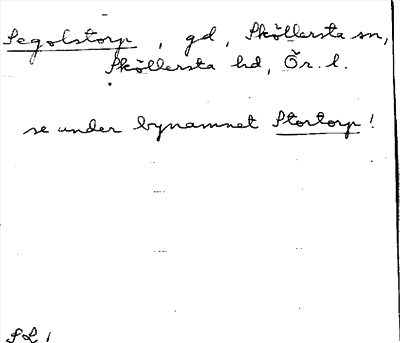 Segolstorp, gd, Sköllersta sn,
Sköllersta hd, Ör. l.
se under bynamnet Stortorp!
SL,